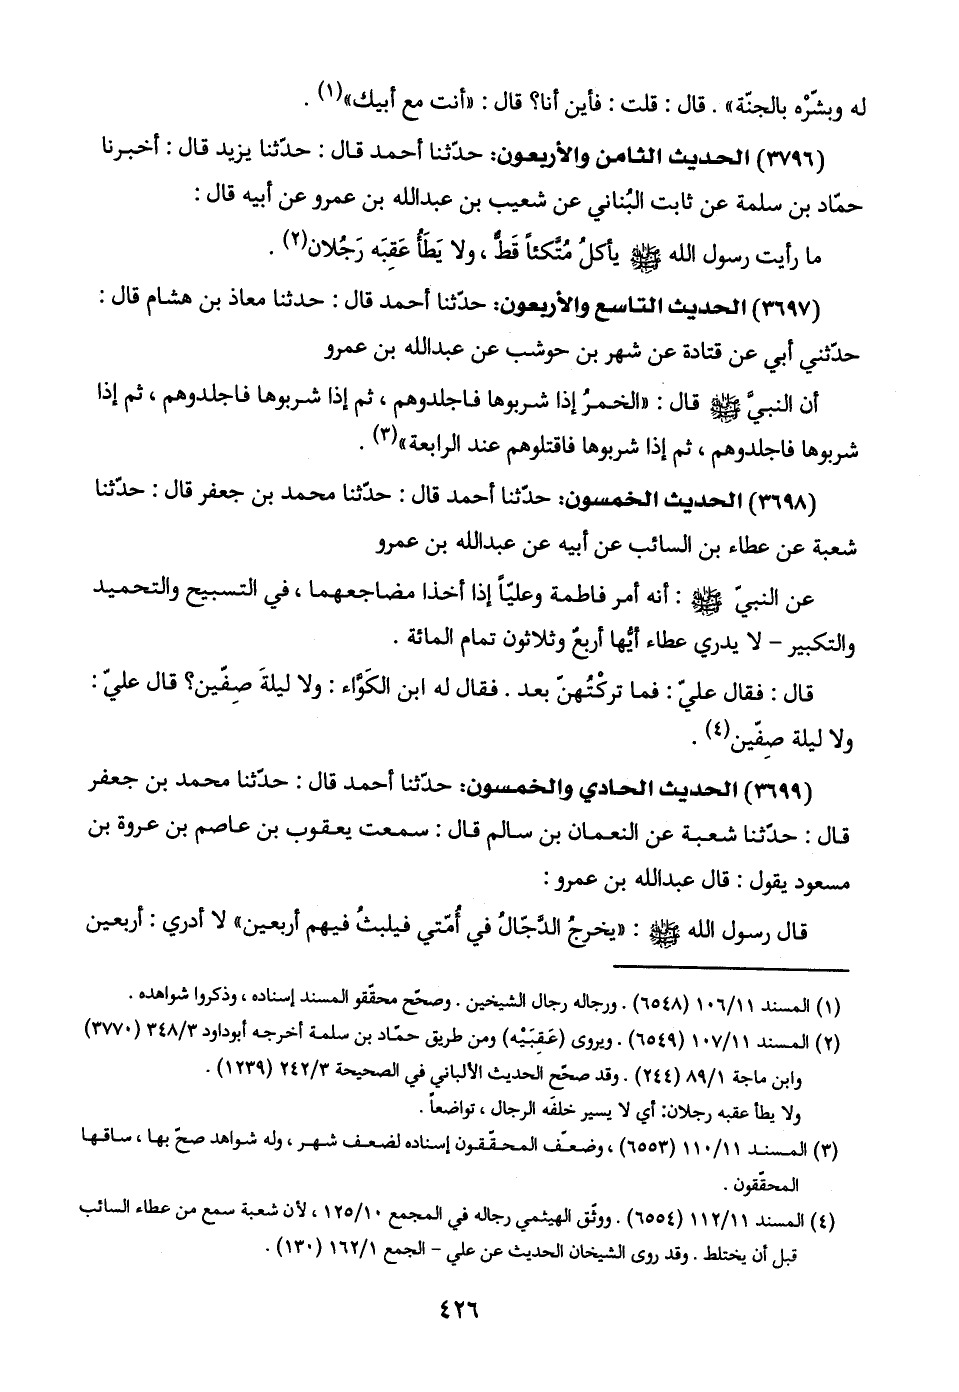 له وبشّرْه بالجنّة» . قال : قلت : فأين أنا؟ قال : «أنت مع أبيك»(١) .
(٣٧٩٦) الحديث الثامن والأربعون: حدّثنا أحمد قال : حدّثنا يزيد قال : أخبرنا
حمّاد بن سلمة عن ثابت البُناني عن شعيب بن عبدالله بن عمرو عن أبيه قال :
ما رأيت رسول الله ﷺ يأكلُ مُتَّكئاً قَطُّ ، ولا يَطَأُ عَقِبَه رَجُلان(٢) .
(٣٦٩٧) الحديث التاسع والأربعون: حدّثنا أحمد قال : حدثنا معاذ بن هشام قال :
حدّثني أبي عن قتادة عن شهر بن حوشب عن عبدالله بن عمرو
أن النبيَّ ﷺ قال : «الخمرُ إذا شربوها فاجلدوهم ، ثم إذا شربوها فاجلدوهم ، ثم إذا
شربوها فاجلدوهم ، ثم إذا شربوها فاقتلوهم عند الرابعة»(٣) .
(٣٦٩٨) الحديث الخمسون: حدّثنا أحمد قال : حدّثنا محمد بن جعفر قال : حدّثنا
شعبة عن عطاء بن السائب عن أبيه عن عبدالله بن عمرو
عن النبيّ ﷺ : أنه أمر فاطمة وعليّاً إذا أخذا مضاجعهما ، في التسبيح والتحميد
والتكبير – لا يدري عطاء أيُّها أربعٌ وثلاثون تمام المائة .
قال : فقال عليّ : فما تركْتُهنّ بعد . فقال له ابن الكَوّاء : ولا ليلةَ صِفّين؟ قال عليّ :
ولا ليلة صِفّين(٤) .
(٣٦٩٩) الحديث الحادي والخمسون: حدّثنا أحمد قال : حدّثنا محمد بن جعفر
قال : حدّثنا شعبة عن النعمان بن سالم قال : سمعت يعقوب بن عاصم بن عروة بن
مسعود يقول : قال عبدالله بن عمرو :
قال رسول الله ﷺ : «يخرجُ الدَّجّالُ في أُمّتي فيلبثُ فيهم أربعين» لا أدري : أربعين
(١) المسند ١٠٦/١١ (٦٥٤٨) . ورجاله رجال الشيخين . وصحّح محقّقو المسند إسناده ، وذكروا شواهده .
(٢) المسند ١٠٧/١١ (٦٥٤٩) . ويروى (عَقِبَيْه) ومن طريق حمّاد بن سلمة أخرجه أبوداود ٣٤٨/٣ (٣٧٧٠)
وابن ماجة ٨٩/١ (٢٤٤) . وقد صحّح الحديث الألباني في الصحيحة ٢٤٢/٣ (١٢٣٩) .
ولا يطأ عقبه رجلان: أي لا يسير خلفَه الرجال ، تواضعاً .
(٣) المسند ١١٠/١١ (٦٥٥٣) ، وضعّف المحقّقون إسناده لضعف شهر ، وله شواهد صحّ بها ، ساقها
المحقّقون .
(٤) المسند ١١٢/١١ (٦٥٥٤) . ووثّق الهيثمي رجاله في المجمع ١٢٥/١٠ ، لأن شعبة سمع من عطاء السائب
قبل أن يختلط . وقد روى الشيخان الحديث عن علي – الجمع ١٦٢/١ (١٣٠) .
٤٢٦